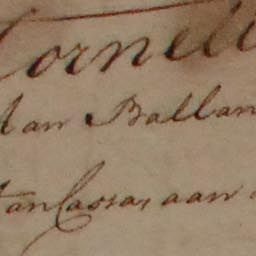 Corneli
an Ballan
an Cassas aan